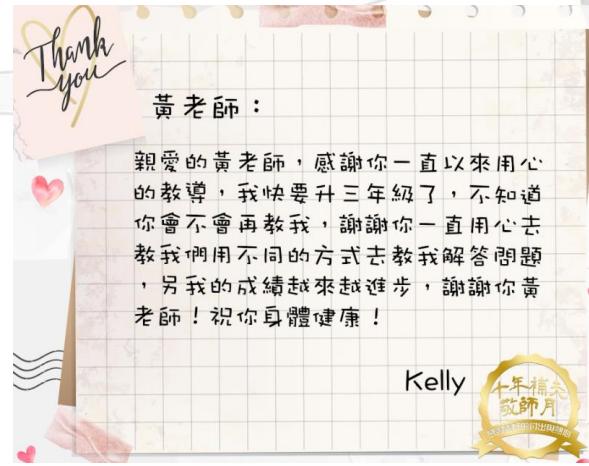 Thank
you
黃老師：
親愛的黃老師，感謝你一直以來用心
的教導，我快要升三年級了，不知道
你會不會再教我，謝謝你一直用心去
教我們用不同的方式去教我解答問題
，另我的成績越來越進步，謝謝你黃
老師！祝你身體健康！
Kelly
十年補夫
敬師月